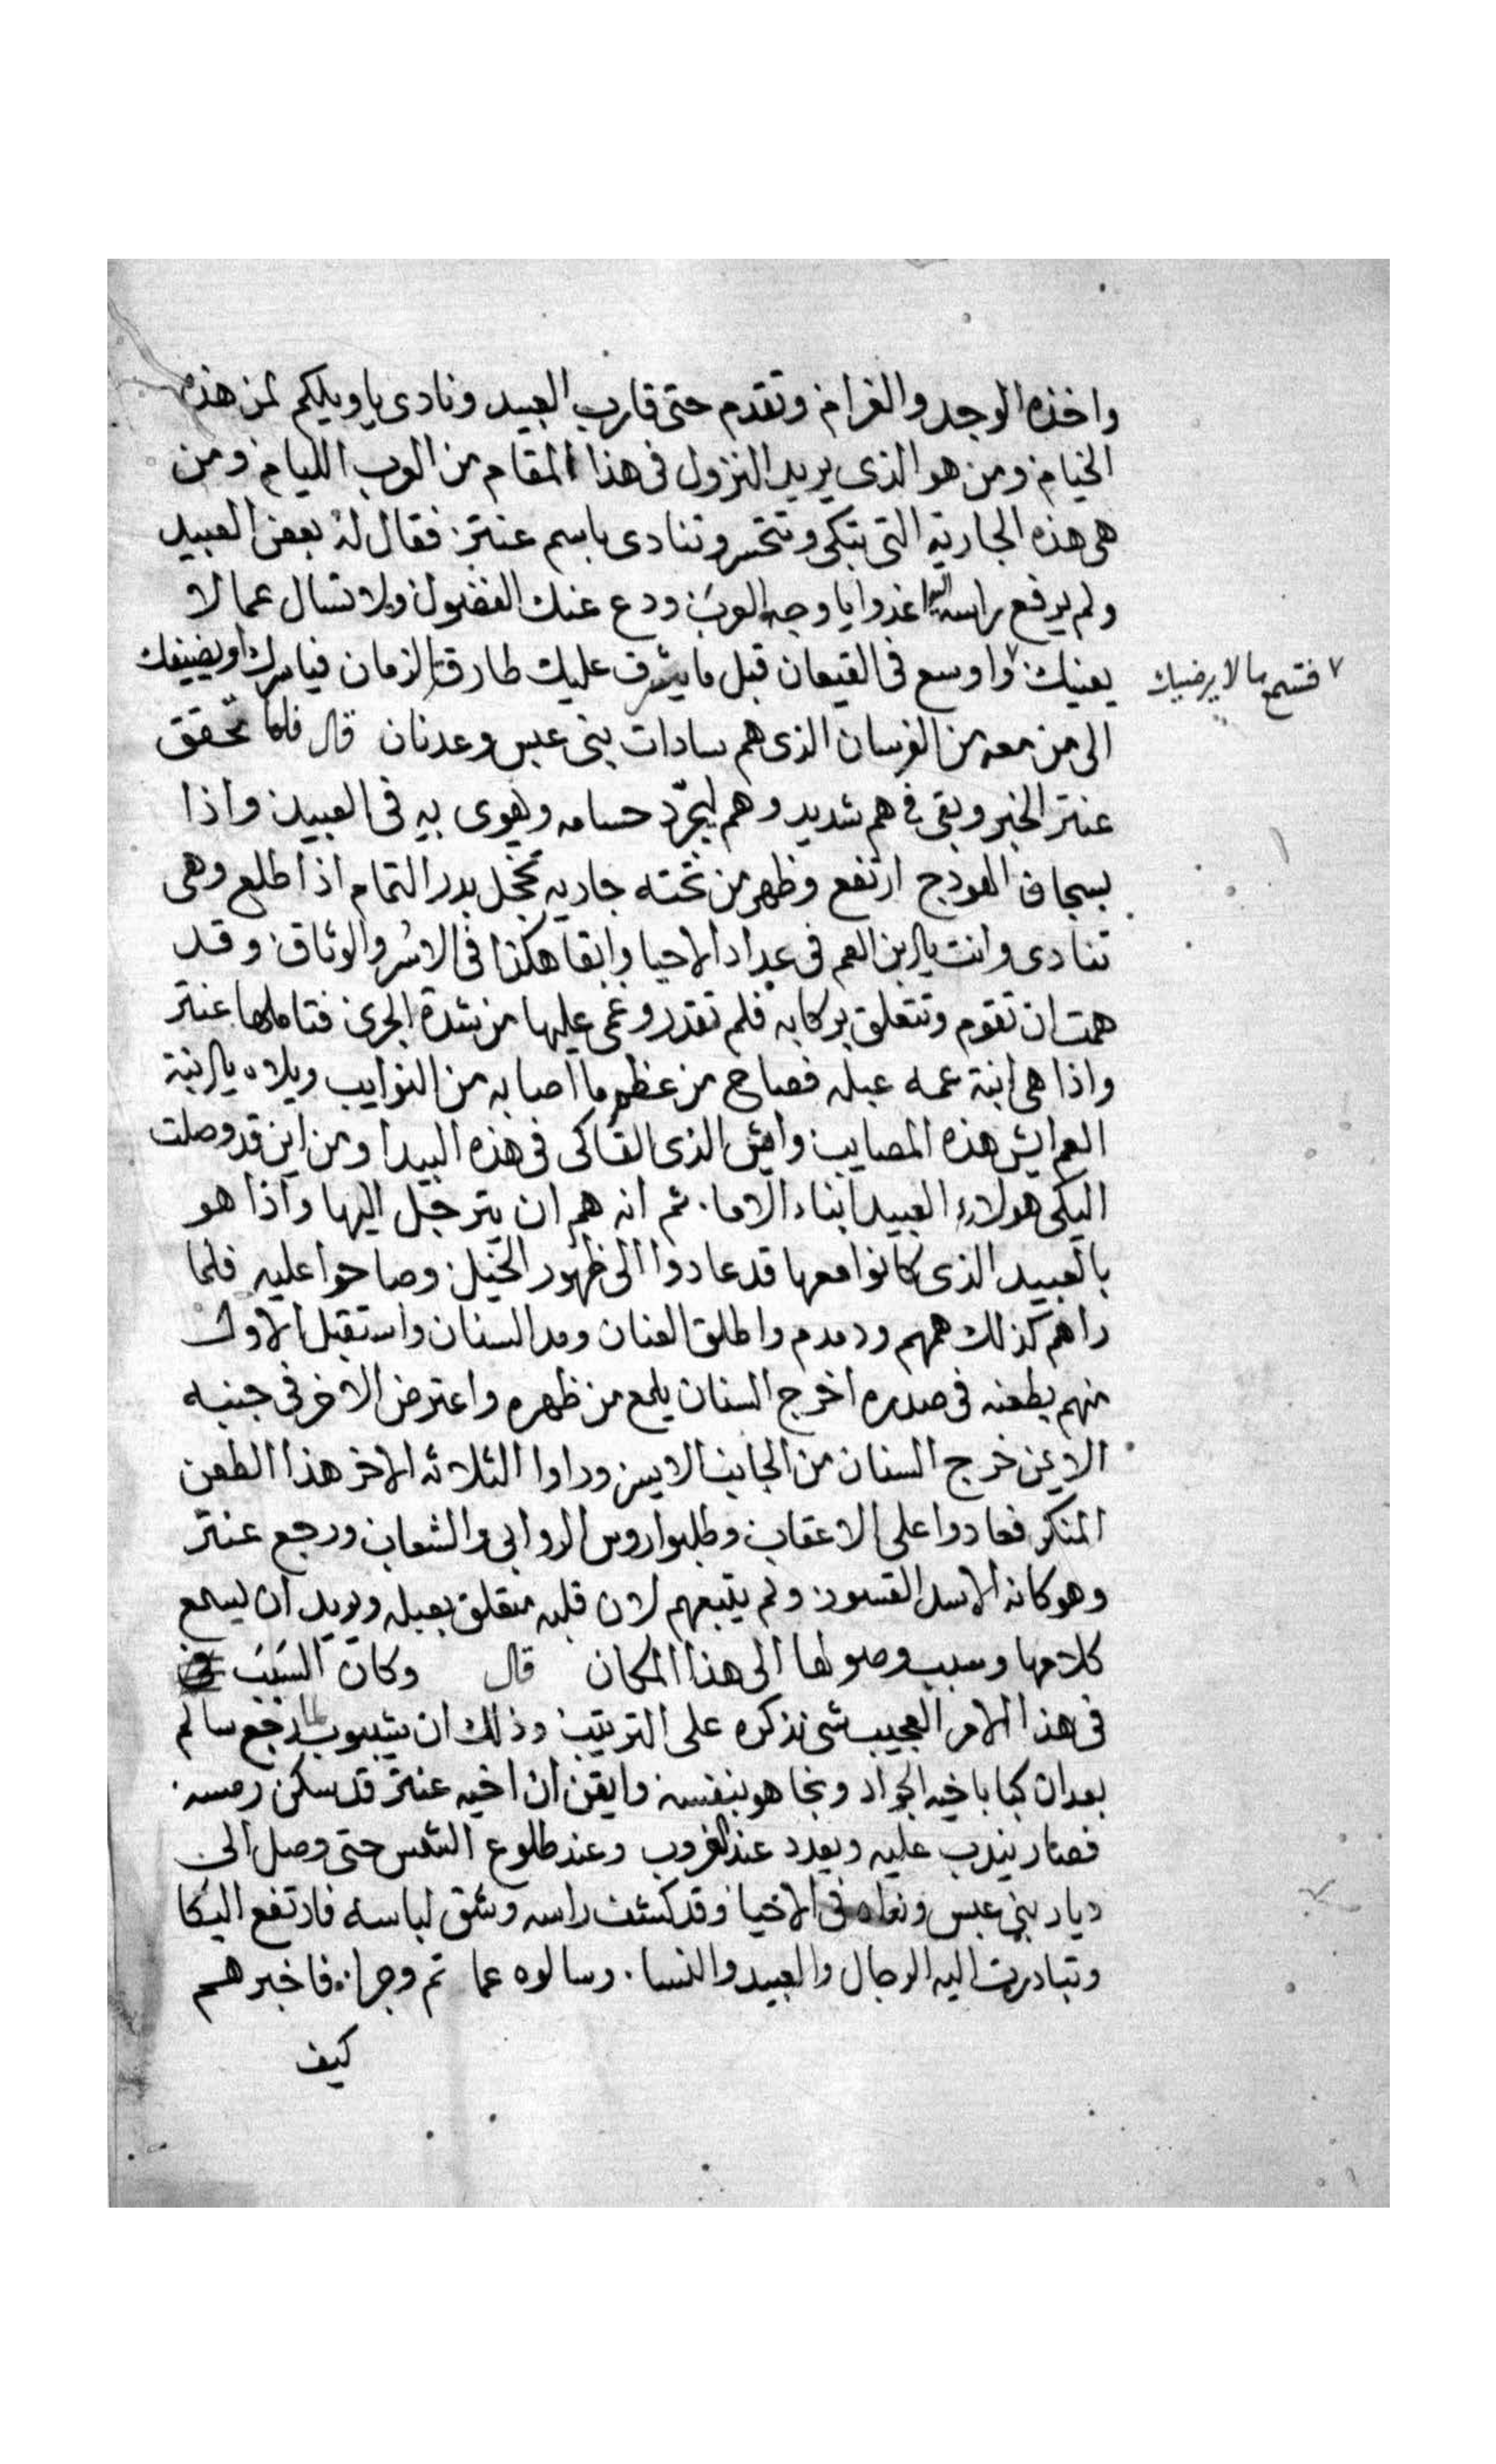 واخذه الوجد والغرام وتقدم حتى قارب العبيد ونادى ياويلكم لمن هذه
الخيام ومن هو الذى يريد النزول فى هذا المقام من العرب الليام ومن
هى هذه الجاريه التى تبكى وتتحسر وتنادى باسم عنتر فقال له بعض العبيد
ولم يرفع راسه اليه اغدوا يا وجه العرب ودع عنك الفضول ولا تسال عما لا
يعنيك ٧ واوسع فى القيعان قبل ما يشرف عليك طارقة الزمان فياسرك او يضيفك
٧ فتسمع ما لا يرضيك
الى من معه من الفرسان الذى هم سادات بنى عبس وعدنان قال فلما تحقق
عنتر الخبر وبقى فى هم شديد وهم ليجرّد حسامه ويهوى بيه فى العبيد واذا
بسجاف الهودج ارتفع وظهر من تحته جاريه تخجل بدر التمام اذا طلع وهى
تنادى وانت يا ابن العم فى عداد الاحيا وابقا هكذا فى الاسر والوثاق وقد
همت ان تقوم وتتعلق بركابه فلم تقدر وغمى عليها من شدة الجرى فتاملها عنتر
واذا هى ابنة عمه عبله فصاح من عظم ما اصابه من النوايب ويلاه يا ابنة
العم ايش هذه المصايب وايش الذى القاكى فى هذه البيدا ومن اين قد وصلت
اليكى هولاء العبيد ابناء الاما ثم انه هم ان يترجل اليها واذا هو
بالعبيد الذى كانوا معها قد عادوا الى ظهور الخيل وصاحوا عليه فلما
راهم كذلك همهم ودمدم واطلق العنان ومد السنان واستقبل الاول
منهم بطعنه فى صدره اخرج السنان يلمع من ظهره واعترض الاخر فى جنبه
الايمن خرج السنان من الجانب الايسر وراوا الثلاثه الاخر هذا الطعن
المنكر فعادوا على الاعقاب وطلبوا روس الروابى والشعاب ورجع عنتر
وهو كانه الاسد القسور ولم يتبعهم لان قلبه متعلق بعبله ويريد ان يسمع
كلامها وسبب وصولها الى هذا المكان قال وكان السَبَب
فى هذا الامر العجيب شى نذكره على الترتيب وذلك ان شيبوب لما رجع سالم
بعد ان كبا باخيه الجواد ونجا هو بنفسه وايقن ان اخيه عنتر قد سكن رمسه
فصار يندب عليه ويعدد عند الغروب وعند طلوع الشمس حتى وصل الى
ديار بنى عبس ونعاه فى الاحيا وقد كشف راسه وشق لباسه فارتفع البكا
وتبادرت اليه الرجال والعبيد والنسا وسالوه عما تم وجرا فاخبرهم
كيف